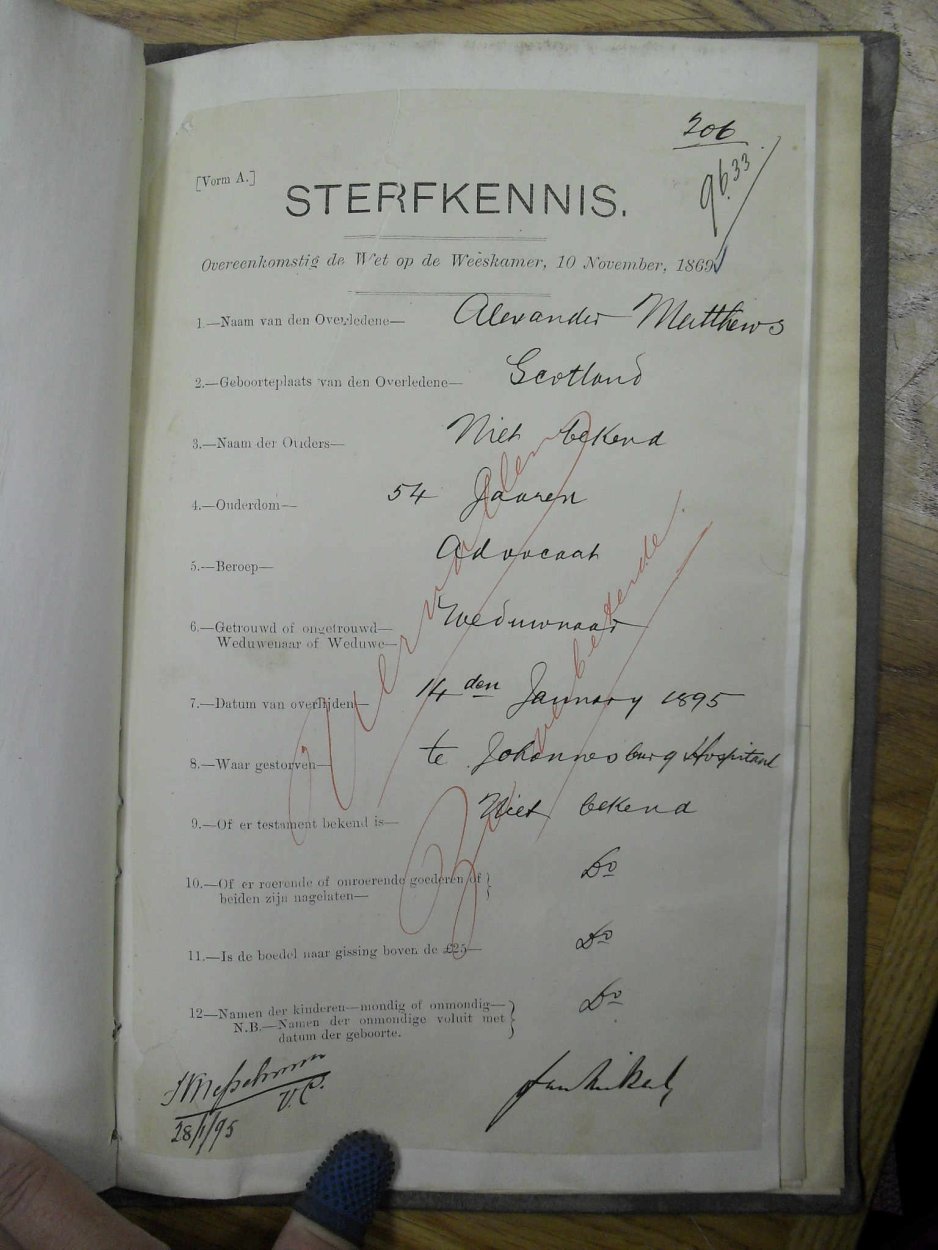 206
9633
[Vorm A.]
STERFKENNIS.
Overeenkomstig de Wet op de Weeskamer, 10 November, 1869.
1.—Naam van den Overledene— Alexander Matthews
2.—Geboorteplaats van den Overledene— Scotland
3.—Naam der Ouders— Niet bekend
4.—Ouderdom— 54 Jaaren
5.—Beroep— Advocaat
6.—Getrouwd of ongetrouwd—
Weduwenaar of Weduwe— Weduwnaar
7.—Datum van overlijden— 14 den January 1895
8.—Waar gestorven— te Johannesburg Hospitaal
9.—Of er testament bekend is— Niet bekend
10.—Of er roerende of onroerende goederen of
beiden zijn nagelaten— Do
11.—Is de boedel naar gissing boven de £25— Do
12—Namen der kinderen—mondig of onmondig—
N.B.—Namen der onmondige voluit met
datum der geboorte. Do
V.C.
28/1/95